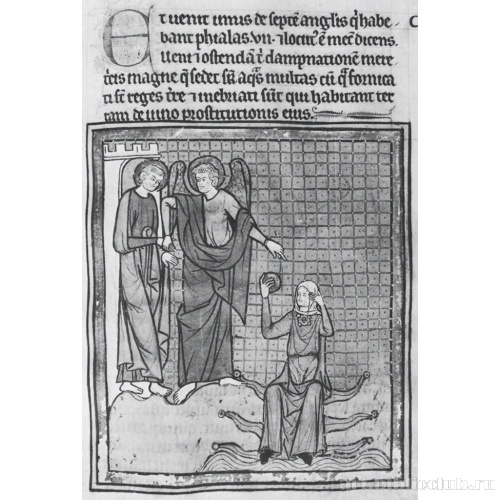 Et uenit unus de septē anglis q̇ habe-
bant phialas .vii. ⁊ locut᾽ ē mec̄ dicens.
Ueni ⁊ ostendā t̄ dampnationē mere-
tͥcis magne q̄ sedet sup̄ aq̄s multas cū q̄ fornica
ti st̄ reges tr̄e ⁊ inebriati sūt qui habitant ter
ram de uino prostitutionis eius.